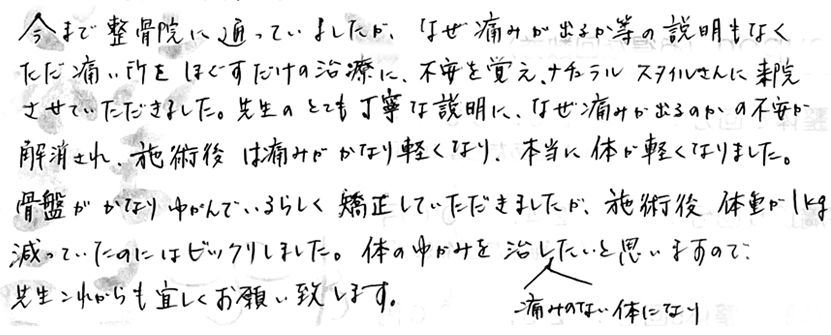 今まで整骨院に通っていましたが、なぜ痛みが出るか等の説明もなく
ただ痛い所をほぐすだけの治療に、不安を覚え、ナチュラルスタイルさんに来院
させていただきました。先生のとても丁寧な説明に、なぜ痛みが出るのかの不安が
解消され、施術後は痛みがかなり軽くなり、本当に体が軽くなりました。
骨盤がかなりゆがんでいるらしく矯正していただきましたが、施術後体重が1kg
減っていたのにはビックリしました。体のゆがみを治したいと思いますので、
先生これからも宜しくお願い致します。
痛みのない体になり